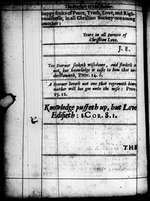 Fruits of Peace, Truth, Love, and Righ-
teousness, in all Christian Society one towards
another:
Yours in all Bonnds of
Christian Love.
J. S.
The Scorner seeketh wisdome, and findeth it
not, but knowledge is easie to him that un-
derstandeth, Prov. 14. 6.
A Scorner loveth not one that reproveth him,
neither will he goe unto the wise: Prov.
15. 12.
Knowledge puffeth up, but Love
Edifieth: 1 COR. 8. 1.
THE